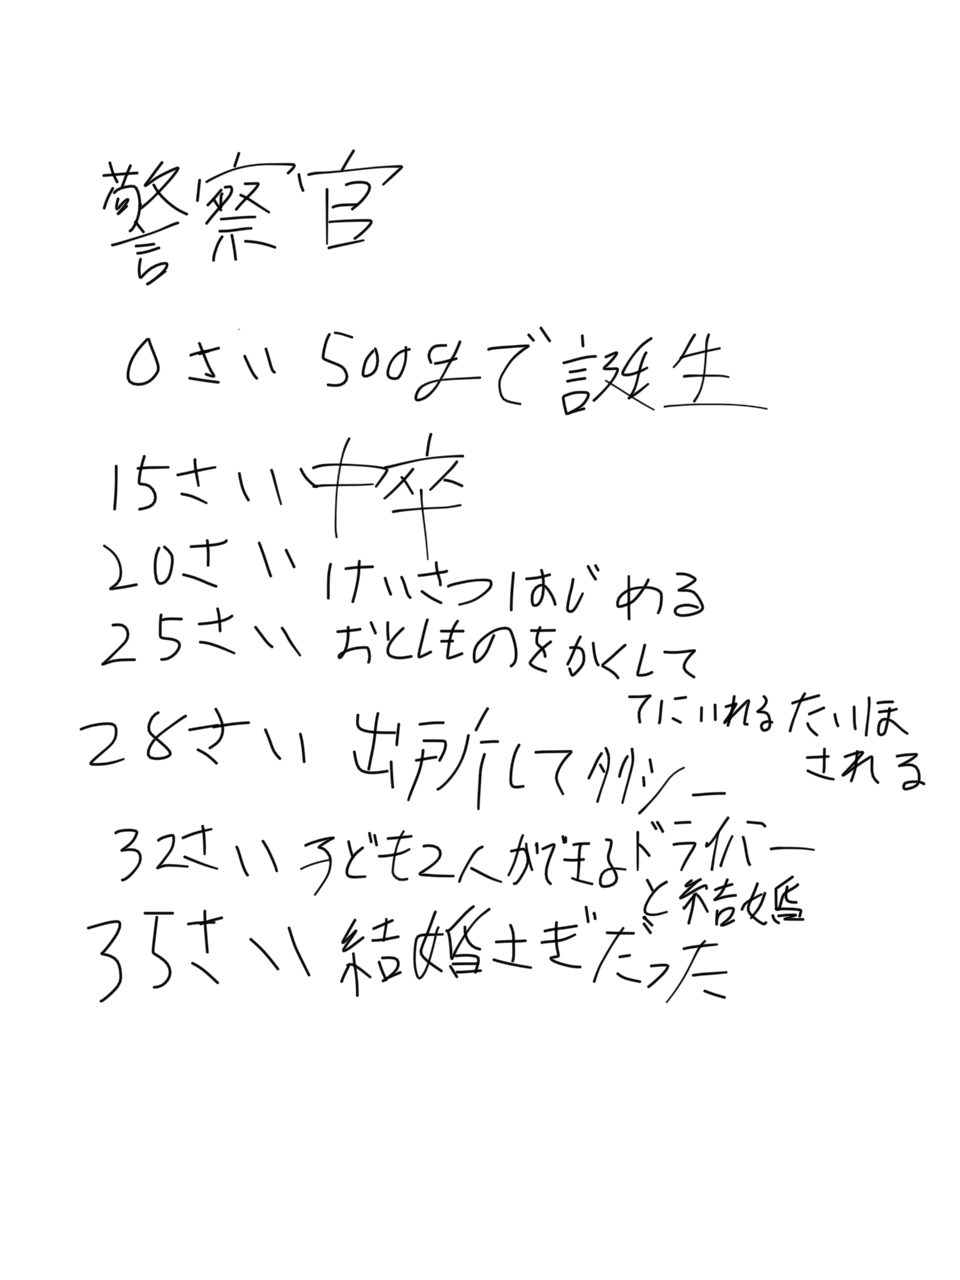 警察官
0さい 500gまで誕生
15さい 中卒
20さい けいさつはじめる
25さい おとしものをかくして
てにいれる たいほ
される
28さい 出所してタクシー
ドライバー
と結婚
32さい 子ども2人ができる
35さい 結婚さぎだった